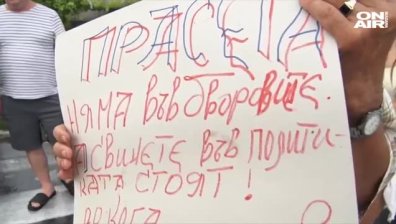 ON
AIR
ПРАСЕТА
НЯМА ВЪВ ДВОРОВЕТЕ.
А СВИНЕТЕ ВЪВ ПОЛИТИ-
КАТА СТОЯТ!
ДОКОГА